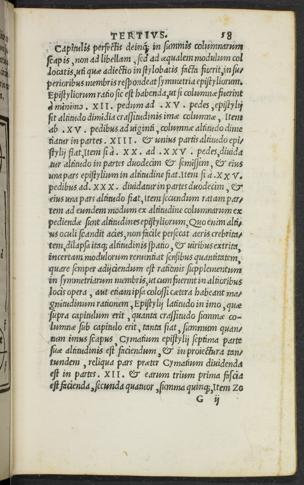 TERTIVS. 58
Capitulis perfectis deinq; in summis columnarum
scapis, non ad libellam, sed ad æqualem modulum col
locatis, uti quæ adiectio in stylobatis facta fuerit, in su
perioribus membris respondeat symmetria epistyliorum.
Epistyliorum ratio sic est habenda, ut si columnæ fuerint
à minimo .XII. pedum ad .XV. pedes, epistylij
sit altitudo dimidia crassitudinis imæ columnæ, Item
ab .XV. pedibus ad uiginti, columnæ altitudo dime
tiatur in partes .XIII. & unius partis altitudo epi
stylij fiat, Item si à .XX. ad .XXV. pedes, diuida
tur altitudo in partes duodecim & semissem, & eius
una pars epistylium in altitudine fiat. Item si à .XXV.
pedibus ad .XXX. diuidatur in partes duodecim, &
eius una pars altitudo fiat, item secundum ratam par=
tem ad eundem modum ex altitudine columnarum ex
pediendæ sunt altitudines epistyliorum, Quo enim alti,
us oculi scandit acies, non facile persecat aeris crebrita=
tem, dilapsa itaq; altitudinis spatio, & uiribus extrita,
incertam modulorum renuntiat sensibus quantitatem,
quare semper adijciendum est rationis supplementum
in symmetriarum membris, ut cum fuerint in altioribus
locis opera, aut etiam ipsa colossicætera habeant ma=
gnitudinum rationem, Epistylij latitudo in imo, quæ
supra capitulum erit, quanta crassitudo summæ co=
lumnæ sub capitulo erit, tanta fiat, summum quan=
tum imus scapus. Cymatium epistylij septima parte
suæ altitudinis est faciendum, & in proiectura tan=
tundem, reliqua pars præter Cymatium diuidenda
est in partes .XII. & earum trium prima fascia
est facienda, secunda quatuor, summa quinq;, Item Zo
G ij